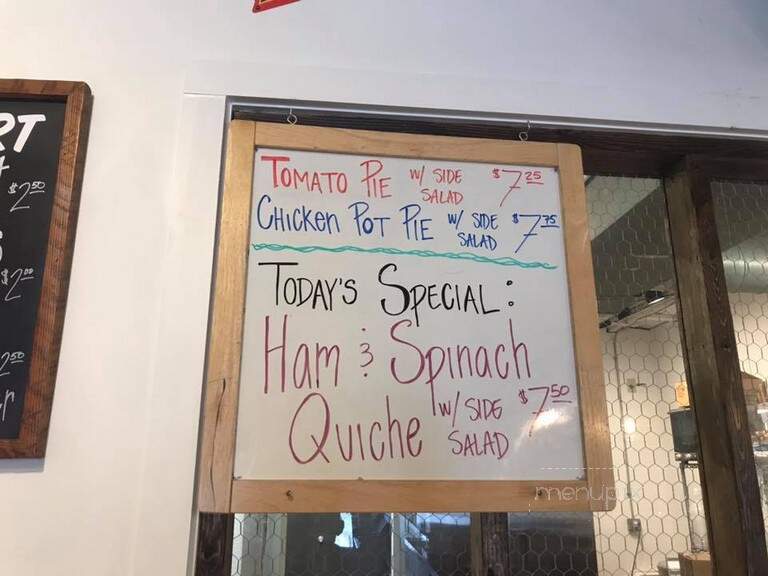 RT
$2.50
$2.00
2.50
r
TOMATO PIE W/ SIDE SALAD $7.25
CHICKEN POT PIE W/ SIDE SALAD $7.75
TODAY'S SPECIAL:
Ham & Spinach
Quiche W/ SIDE SALAD $7.50
menupix